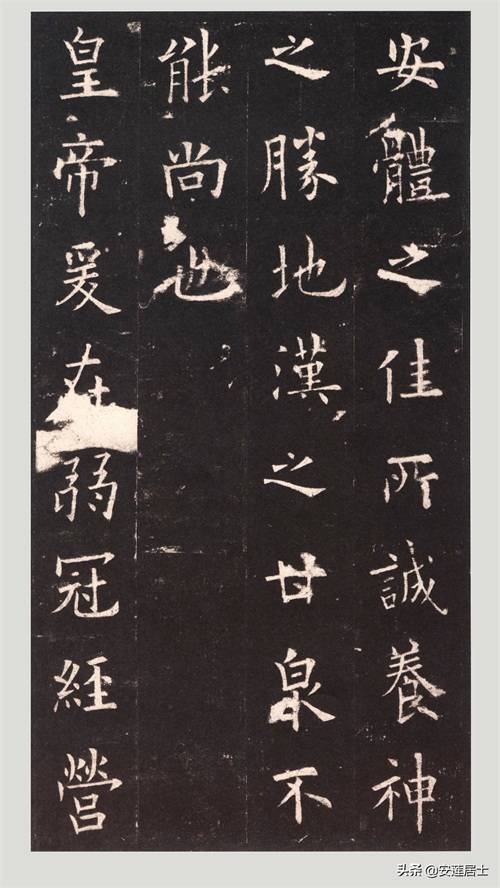 安體之佳所誠養神
之勝地漢之甘泉不
能尚也
皇帝爰在弱冠經營
头条 @安莲居士